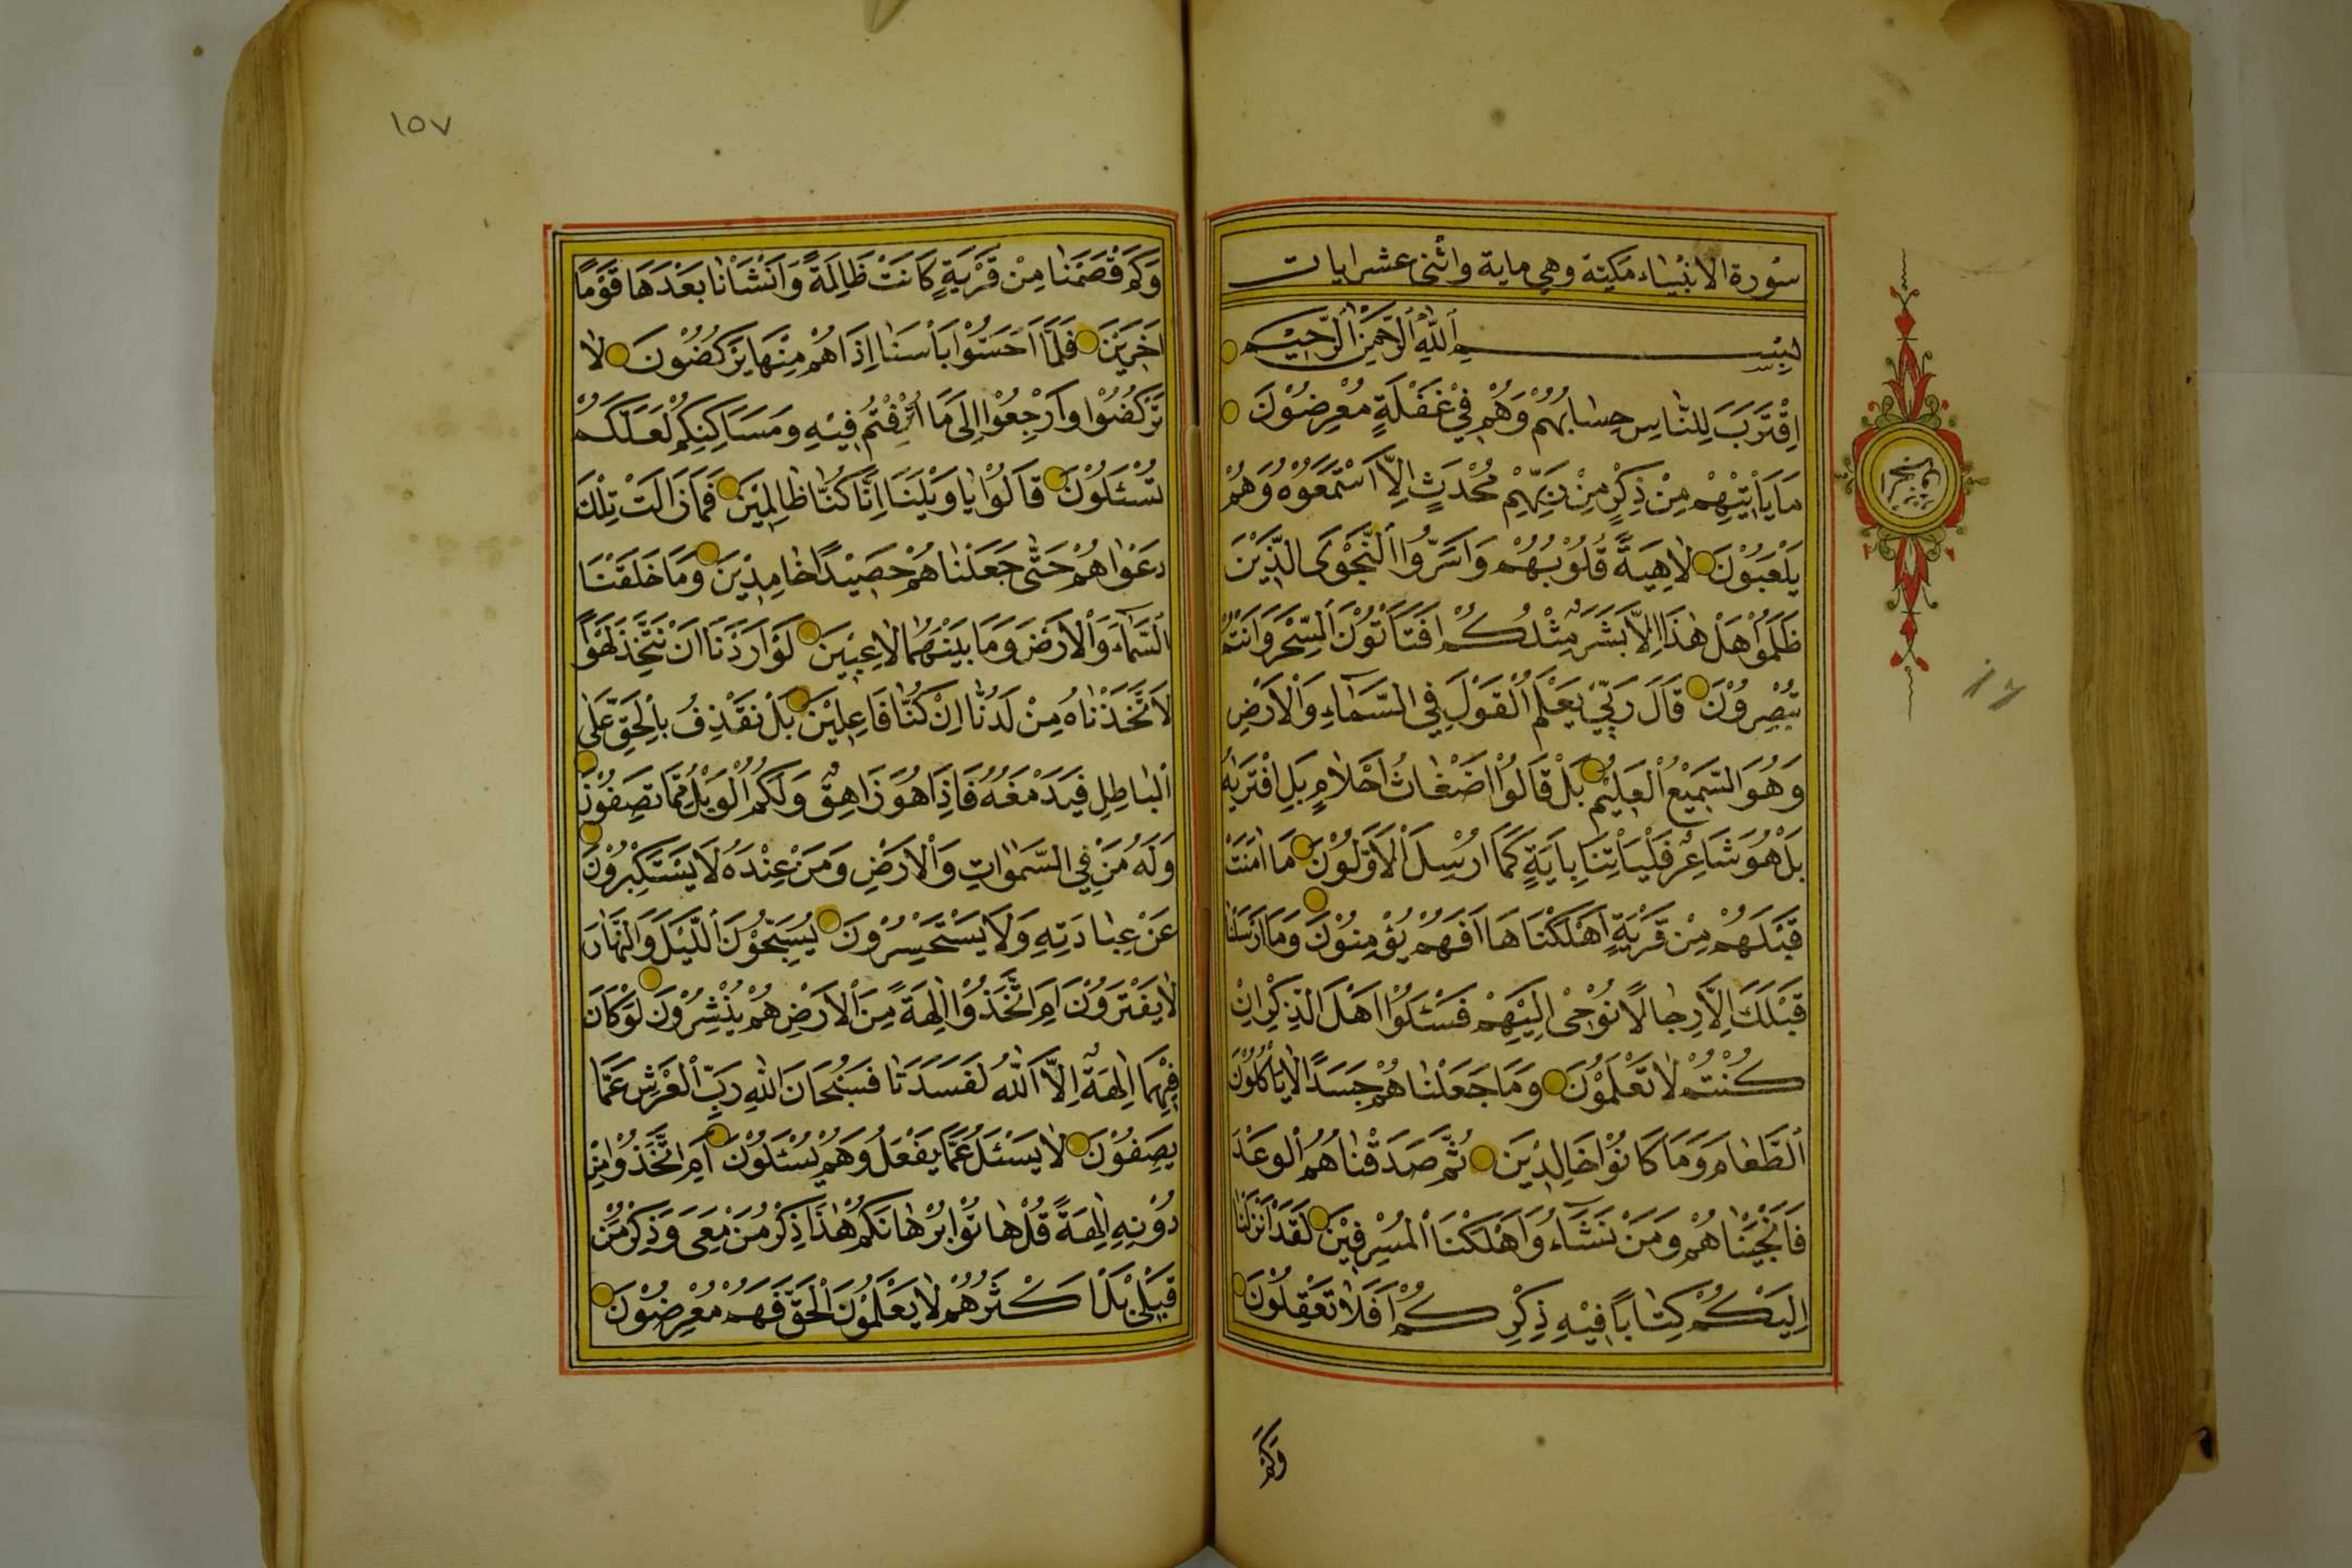 سُورة الانبْيَاء مَكيّة وهي ماية واثنى عشر ايات
بِسْمِ اللّٰهِ الرَّحْمٰنِ الرَّحِيْمِ
اِقْتَرَبَ لِلنَّاسِ حِسَابُهُمْ وَهُمْ فِيْ غَفْلَةٍ مُعْرِضُوْنَ
مَا يَأْتِيْهِمْ مِنْ ذِكْرٍ مِنْ رَبِّهِمْ مُحْدَثٍ اِلَّا اسْتَمَعُوْهُ وَهُمْ
يَلْعَبُوْنَ لَاهِيَةً قُلُوْبُهُمْ وَاَسَرُّوا النَّجْوَى الَّذِيْنَ
ظَلَمُوْا هَلْ هٰذَا اِلَّا بَشَرٌ مِثْلُكُمْ اَفَتَأْتُوْنَ السِّحْرَ وَاَنْتُمْ
تُبْصِرُوْنَ قَالَ رَبِّيْ يَعْلَمُ الْقَوْلَ فِي السَّمَآءِ وَالْاَرْضِ
وَهُوَ السَّمِيْعُ الْعَلِيْمُ بَلْ قَالُوْا اَضْغَاثُ اَحْلَامٍ بَلِ افْتَرٰيهُ
بَلْ هُوَ شَاعِرٌ فَلْيَأْتِنَا بِاٰيَةٍ كَمَا اُرْسِلَ الْاَوَّلُوْنَ مَا اٰمَنَتْ
قَبْلَهُمْ مِنْ قَرْيَةٍ اَهْلَكْنَاهَا اَفَهُمْ يُؤْمِنُوْنَ وَمَا اَرْسَلْنَا
قَبْلَكَ اِلَّا رِجَالًا نُوْحِىْ اِلَيْهِمْ فَسْئَلُوْا اَهْلَ الذِّكْرِ اِنْ
كُنْتُمْ لَا تَعْلَمُوْنَ وَمَا جَعَلْنَاهُمْ جَسَدًا لَا يَأْكُلُوْنَ
الطَّعَامَ وَمَا كَانُوْا خَالِدِيْنَ ثُمَّ صَدَقْنَاهُمُ الْوَعْدَ
فَاَنْجَيْنَاهُمْ وَمَنْ نَشَآءُ وَاَهْلَكْنَا الْمُسْرِفِيْنَ لَقَدْ اَنْزَلْنَا
اِلَيْكُمْ كِتَابًا فِيْهِ ذِكْرُكُمْ اَفَلَا تَعْقِلُوْنَ
وَكَمْ
١٥٧
وَكَمْ قَصَمْنَا مِنْ قَرْيَةٍ كَانَتْ ظَالِمَةً وَاَنْشَأْنَا بَعْدَهَا قَوْمًا
اٰخَرِيْنَ فَلَمَّا اَحَسُّوْا بَأْسَنَا اِذَا هُمْ مِنْهَا يَرْكُضُوْنَ لَا
تَرْكُضُوْا وَارْجِعُوْا اِلَى مَا اُتْرِفْتُمْ فِيْهِ وَمَسَاكِنِكُمْ لَعَلَّكُمْ
تُسْئَلُوْنَ قَالُوْا يَا وَيْلَنَا اِنَّا كُنَّا ظَالِمِيْنَ فَمَا زَالَتْ تِلْكَ
دَعْوَاهُمْ حَتّٰى جَعَلْنَاهُمْ حَصِيْدًا خَامِدِيْنَ وَمَا خَلَقْنَا
السَّمَآءَ وَالْاَرْضَ وَمَا بَيْنَهُمَا لَاعِبِيْنَ لَوْ اَرَدْنَا اَنْ نَتَّخِذَ لَهْوًا
لَاتَّخَذْنَاهُ مِنْ لَدُنَّا اِنْ كُنَّا فَاعِلِيْنَ بَلْ نَقْذِفُ بِالْحَقِّ عَلَى
الْبَاطِلِ فَيَدْمَغُهُ فَاِذَا هُوَ زَاهِقٌ وَلَكُمُ الْوَيْلُ مِمَّا تَصِفُوْنَ
وَلَهُ مَنْ فِي السَّمٰوَاتِ وَالْاَرْضِ وَمَنْ عِنْدَهُ لَا يَسْتَكْبِرُوْنَ
عَنْ عِبَادَتِهِ وَلَا يَسْتَحْسِرُوْنَ يُسَبِّحُوْنَ اللَّيْلَ وَالنَّهَارَ
لَا يَفْتَرُوْنَ اَمِ اتَّخَذُوْا اٰلِهَةً مِنَ الْاَرْضِ هُمْ يُنْشِرُوْنَ لَوْ كَانَ
فِيْهِمَا اٰلِهَةٌ اِلَّا اللّٰهُ لَفَسَدَتَا فَسُبْحَانَ اللّٰهِ رَبِّ الْعَرْشِ عَمَّا
يَصِفُوْنَ لَا يُسْئَلُ عَمَّا يَفْعَلُ وَهُمْ يُسْئَلُوْنَ اَمِ اتَّخَذُوْا مِنْ
دُوْنِهِ اٰلِهَةً قُلْ هَاتُوْا بُرْهَانَكُمْ هٰذَا ذِكْرُ مَنْ مَعِىَ وَذِكْرُ مَنْ
قَبْلِىْ بَلْ اَكْثَرُهُمْ لَا يَعْلَمُوْنَ الْحَقَّ فَهُمْ مُعْرِضُوْنَ